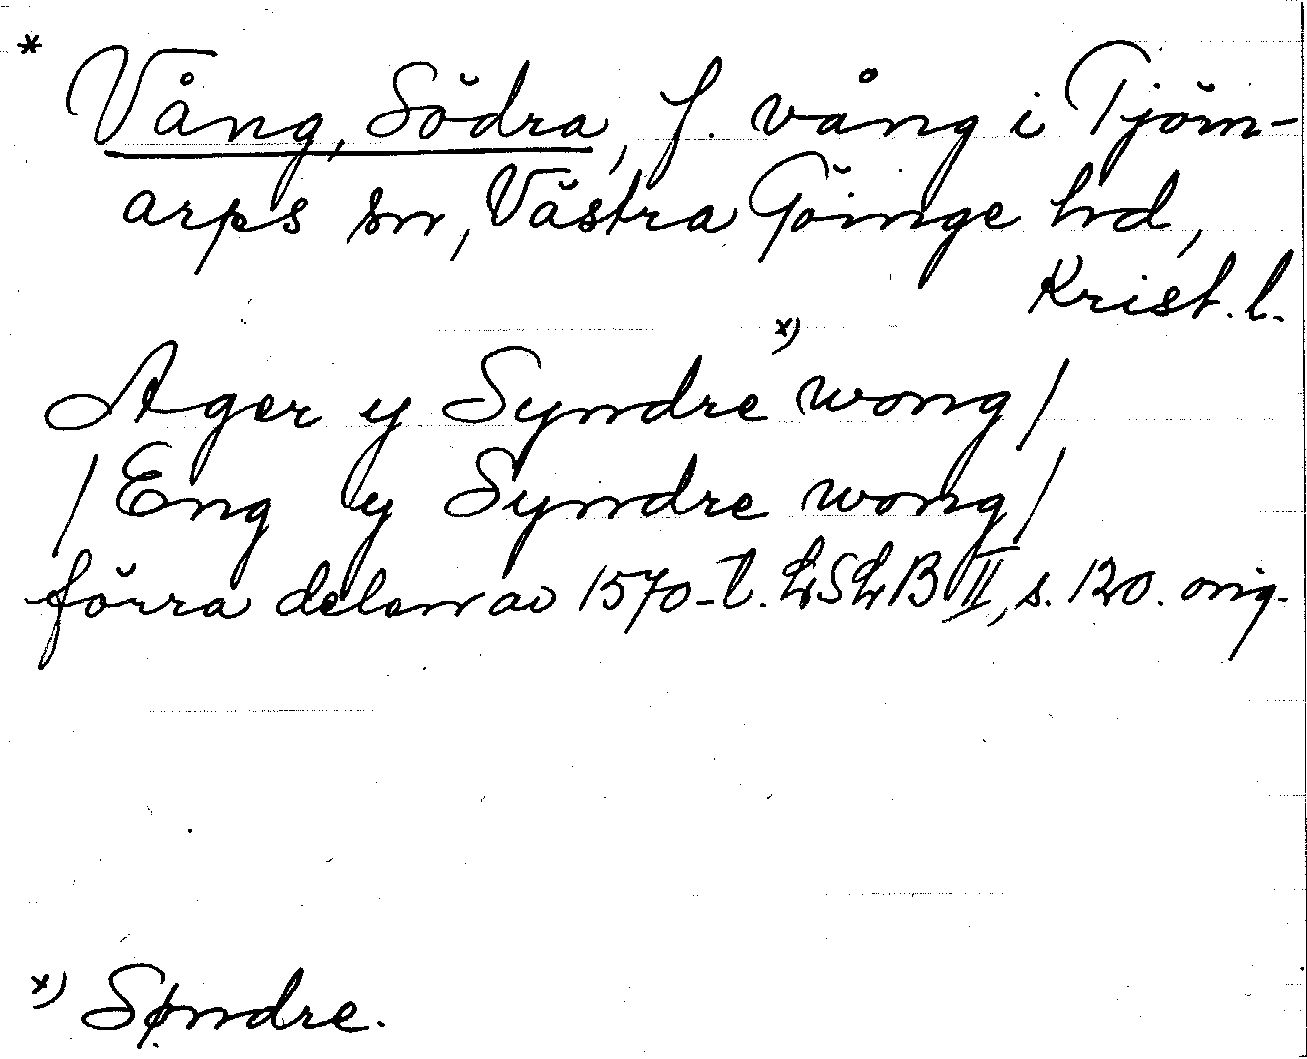 * Vång, Södra, f. vång i Tjörn-
arps sn, Västra Göinge hd,
Krist. l.
Ager y Syndre x) wong /
/ Eng y Syndre wong /
förra delen av 1570-t. LSLB II, s. 120. orig.
x) Søndre.